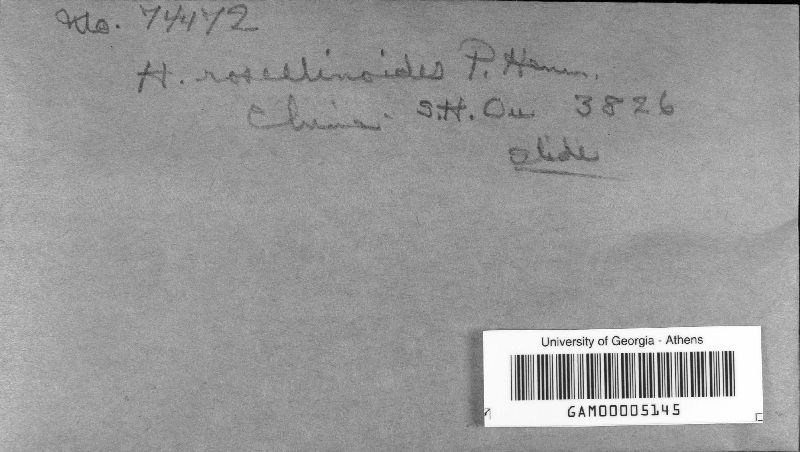 No. 74472
H. rosellinoides P. Henn.
China. S.H. Ou 3826
slide
University of Georgia - Athens
GAM00005145